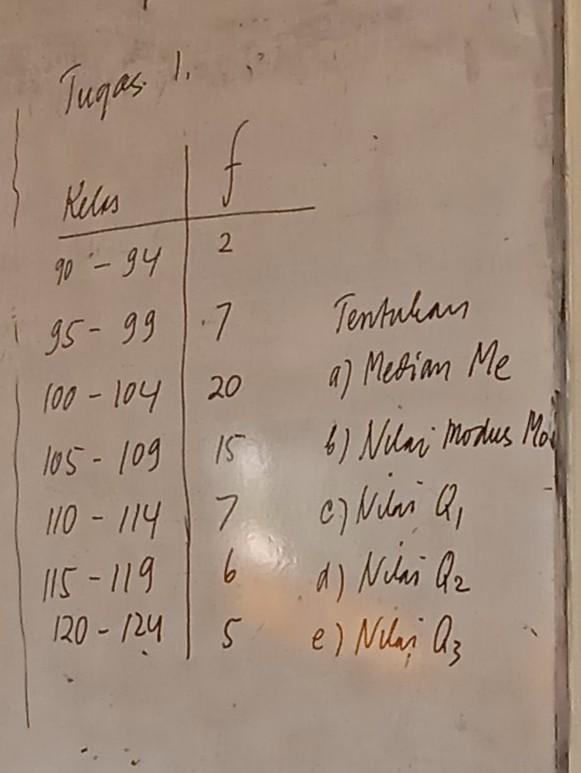 Tugas 1.
Kelas f
90 - 94 2
95 - 99 7
100 - 104 20
105 - 109 15
110 - 114 7
115 - 119 6
120 - 124 5
Tentukan
a) Median Me
b) Nilai Modus Mo
c) Nilai Q₁
d) Nilai Q₂
e) Nilai Q₃